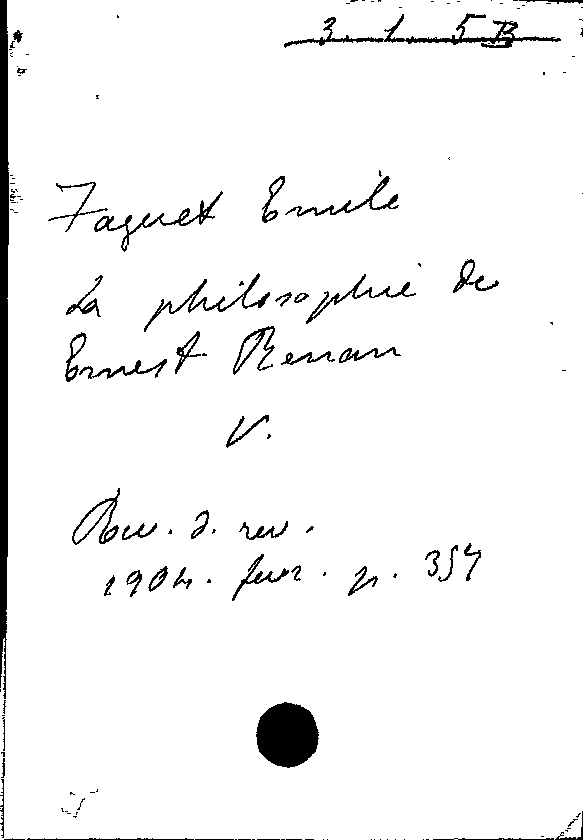 3.1.5B
Faguet Emile
La philosophie de
Ernest Renan
V.
Rev. d. rev.
1904. fevr. p. 354